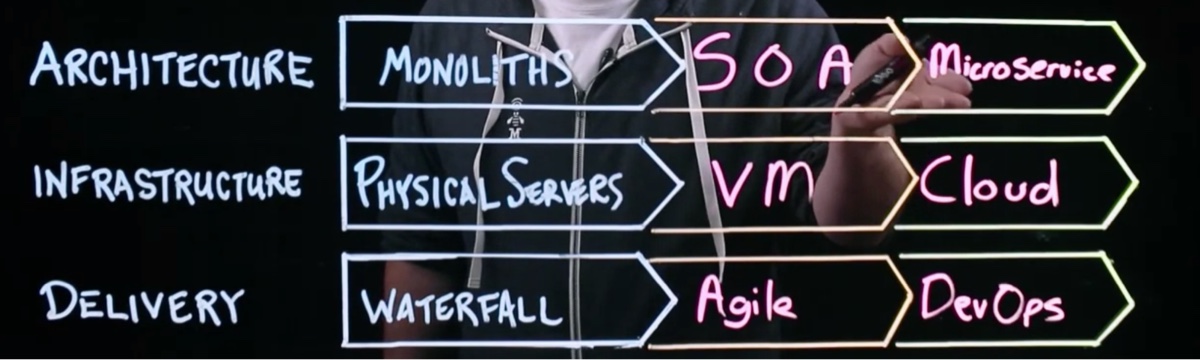 ARCHITECTURE MONOLITHS SOA Microservice
M
INFRASTRUCTURE PHYSICAL SERVERS VM Cloud
DELIVERY WATERFALL Agile DevOps